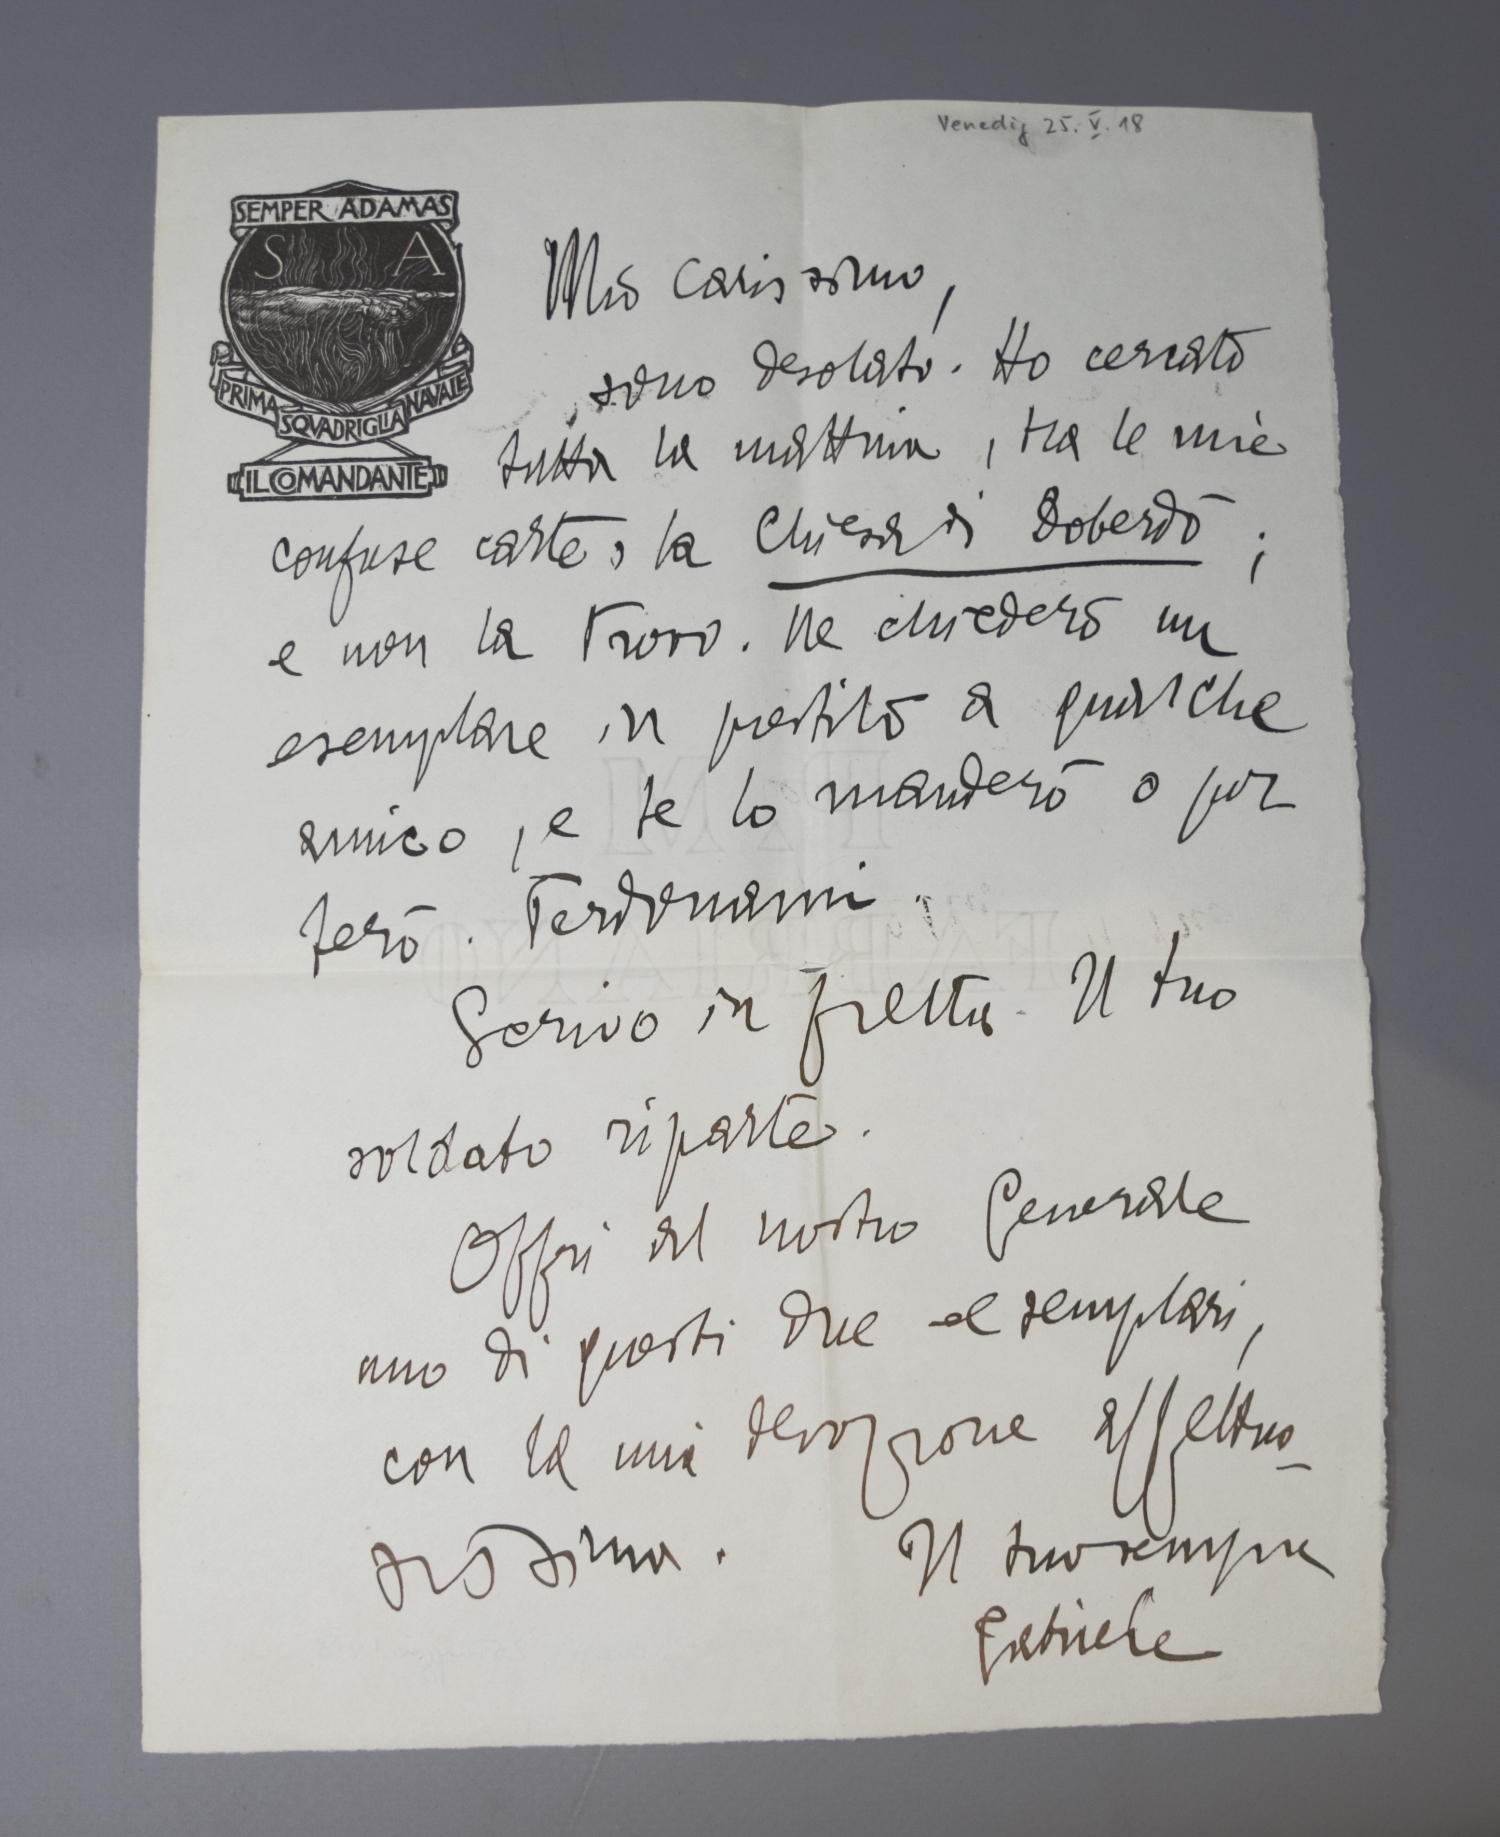 Venedig 25. V. 18
SEMPER ADAMAS
S A
PRIMA SQVADRIGLIA NAVALE
IL COMANDANTE
Mio carissimo,
sono desolato. Ho cercato
tutta la mattina, tra le mie
confuse carte, la Chiesa di Doberdò;
e non la trovo. Ne chiederò un
esemplare in prestito a qualche
amico, e te lo manderò o por
terò.
Scrivo in fretta. Il tuo
soldato riparte.
Offri al nostro Generale
uno di questi due esemplari,
con la mia devozione affettuo
sissima. Il tuo sempre
Gabriele
PM
FABRIANO